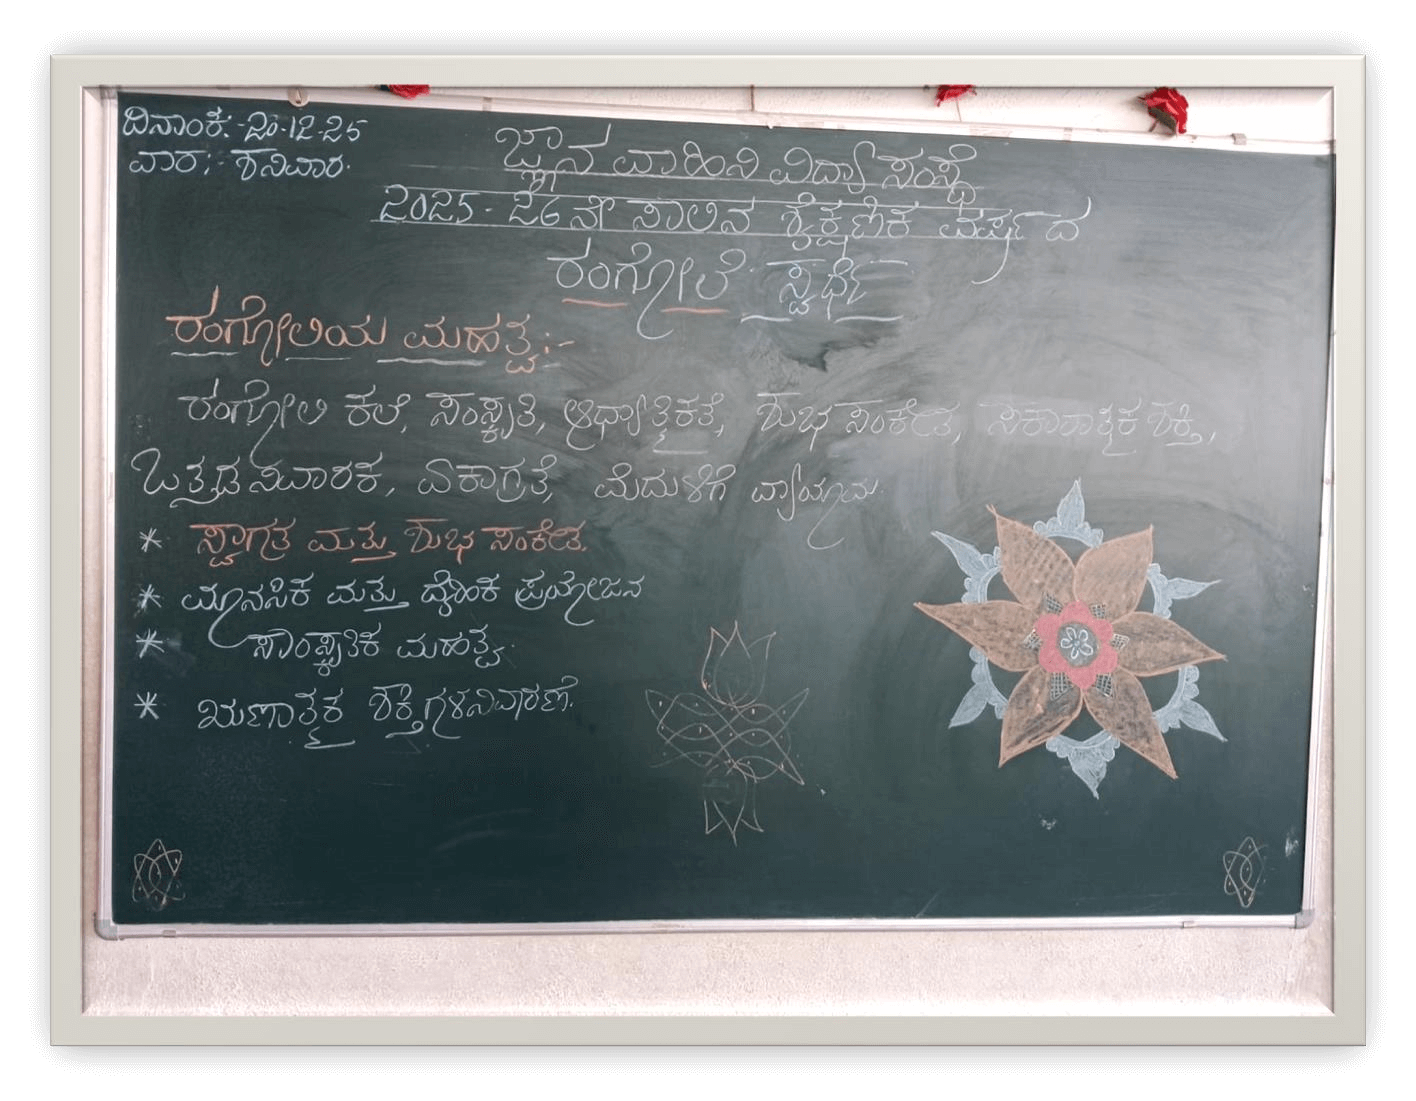 ದಿನಾಂಕ:-20-12-25
ವಾರ:- ಶನಿವಾರ.
ಜ್ಞಾನ ವಾಹಿನಿ ವಿದ್ಯಾ ಸಂಸ್ಥೆ
2025-26ನೇ ಸಾಲಿನ ಶೈಕ್ಷಣಿಕ ವರ್ಷದ
ರಂಗೋಲಿ ಸ್ಪರ್ಧೆ
ರಂಗೋಲಿಯ ಮಹತ್ವ:-
ರಂಗೋಲಿ ಕಲೆ, ಸಂಸ್ಕೃತಿ, ಆಧ್ಯಾತ್ಮಿಕತೆ, ಶುಭ ಸಂಕೇತ, ಸಕಾರಾತ್ಮಕ ಶಕ್ತಿ,
ಒತ್ತಡ ನಿವಾರಕ, ಏಕಾಗ್ರತೆ, ಮೆದುಳಿಗೆ ವ್ಯಾಯಾಮ.
* ಸ್ವಾಗತ ಮತ್ತು ಶುಭ ಸಂಕೇತ.
* ಮಾನಸಿಕ ಮತ್ತು ದೈಹಿಕ ಪ್ರಯೋಜನ
* ಸಾಂಸ್ಕೃತಿಕ ಮಹತ್ವ.
* ಋಣಾತ್ಮಕ ಶಕ್ತಿಗಳ ನಿವಾರಣೆ.